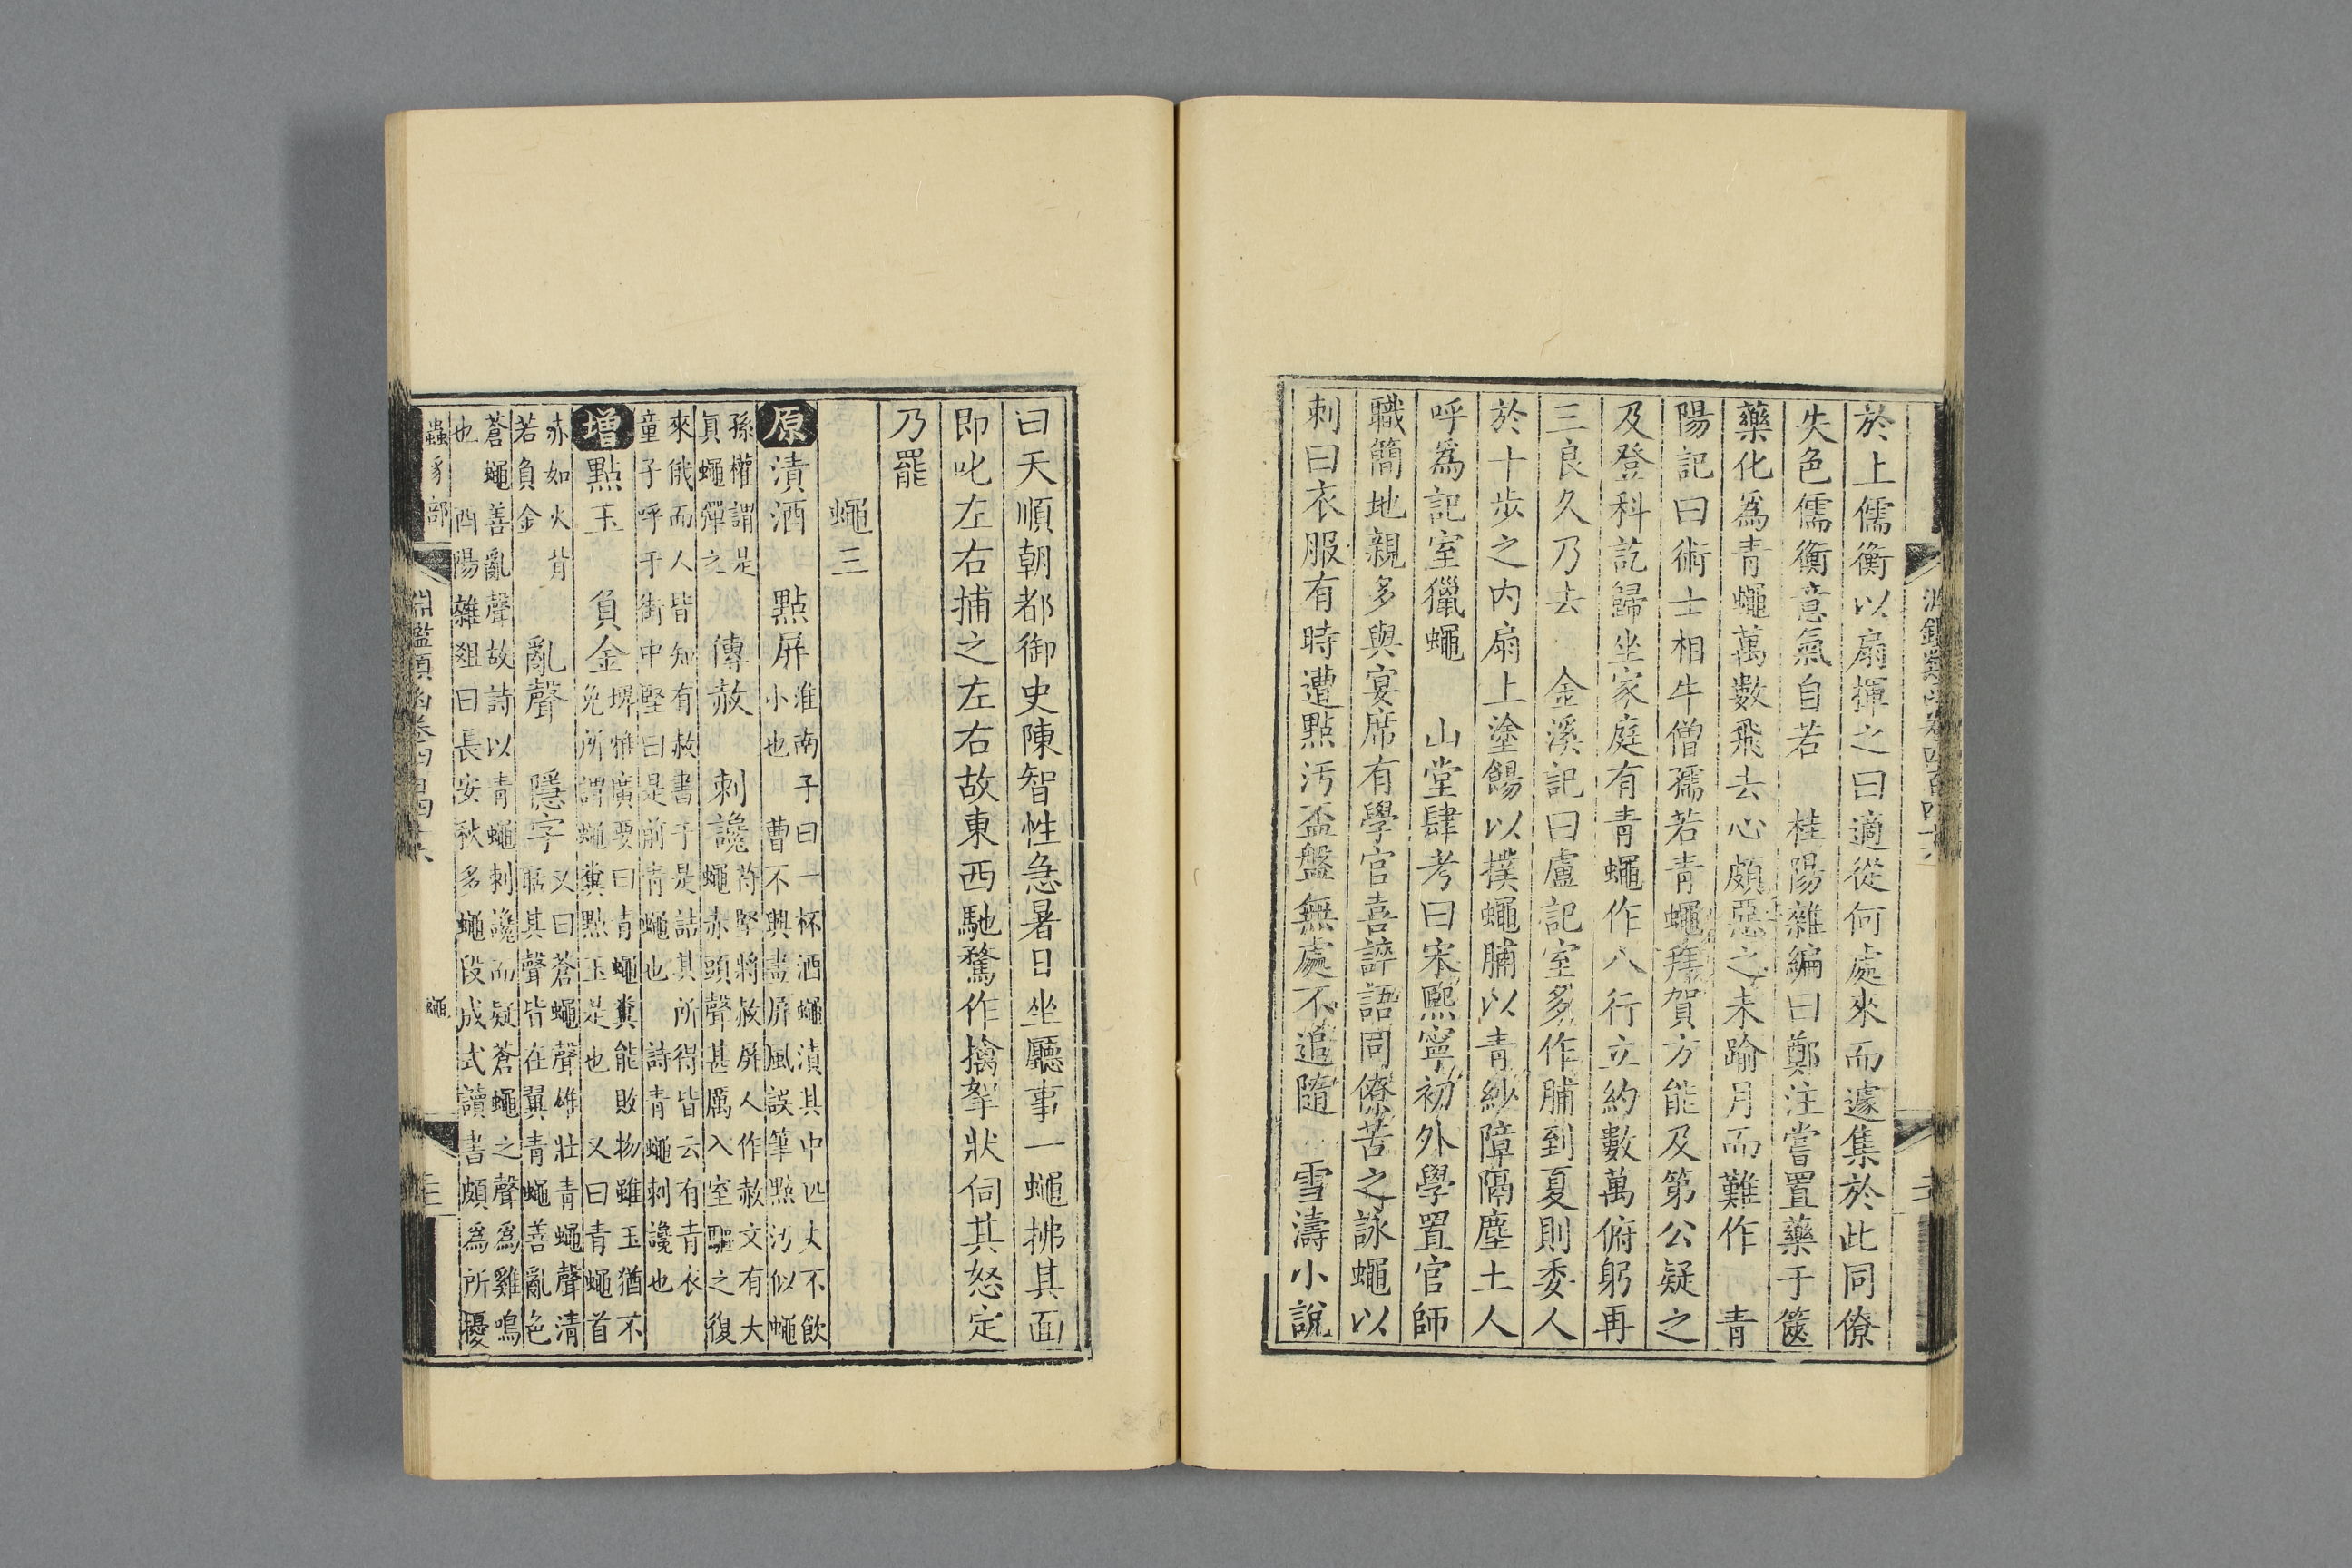 於上儒衡以扇揮之曰適從何處來而遽集於此同僚
失色儒衡意氣自若　桂陽雜編曰鄭注嘗置藥于篋
藥化爲青蠅萬數飛去心頗惡之未踰月而難作　青
陽記曰術士相牛僧孺若青蠅拜賀方能及第公疑之
及登科訖歸坐家庭有青蠅作八行立約數萬俯躬再
三良久乃去　金溪記曰盧記室多作脯到夏則委人
於十步之內扇上塗餳以撲蠅脯以青紗障隔塵土人
呼爲記室獵蠅　山堂肆考曰宋熙寧初外學置官師
職簡地親多與宴席有學官喜誶語同僚苦之詠蠅以
刺曰衣服有時遭點汚盃盤無處不追隨　雪濤小說
曰天順朝都御史陳智性急暑日坐廳事一蠅拂其面
即叱左右捕之左右故東西馳騖作擒拏狀伺其怒定
乃罷
蠅三
原漬酒　點屏淮南子曰一杯酒蠅漬其中匹丈不飲
小也　曹不興畫屏風誤筆點汚似蠅
孫權謂是
眞蠅彈之　傳赦　刺讒苻堅將赦屏人作赦文有大
蠅赤頭聲甚厲入室驅之復
來俄而人皆知有赦書于是詰其所得皆云有青衣
童子呼于街中堅曰是前青蠅也　詩青蠅刺讒也
增點玉　負金埤雅廣要曰青蠅糞能敗物雖玉猶不
免所謂蠅糞點玉是也　又曰青蠅首
赤如火背
若負金　亂聲　隱字又曰蒼蠅聲雄壯青蠅聲清
聒其聲皆在翼青蠅善亂色
蒼蠅善亂聲故詩以青蠅刺讒而疑蒼蠅之聲爲雞鳴
也　酉陽雜俎曰長安秋多蠅段成式讀書頗爲所擾
蟲豸部
蠅